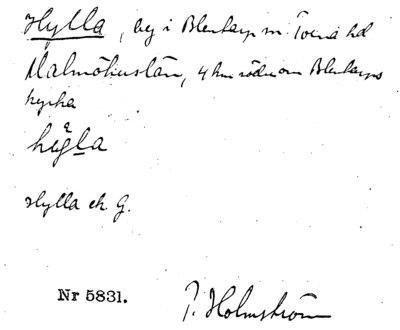 Hylla, by i Blentarp sn Torna hd
Malmöhuslän, 4 km söder om Blentarps
kyrka
Hylla ek. G.
Nr 5831.
P. Holmström